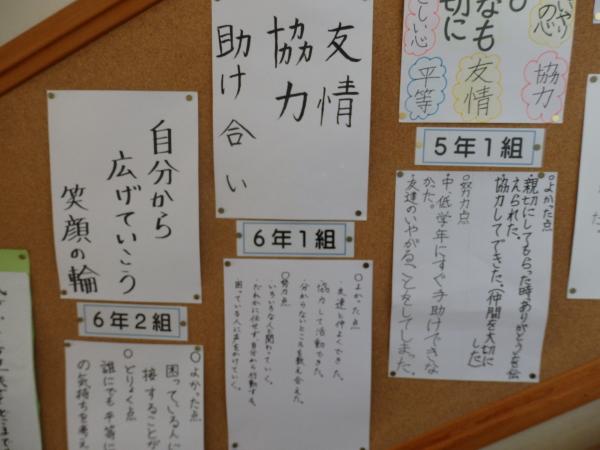 やりの心
協力
なも
切に
友情
さしい心
平等
5年1組
○よかった点
・親切にしてもらった時、ありがとうを伝
えられた。
・協力してできた。(仲間を大切に
した)
○努力点
・中、低学年にすぐ手助けできな
かった。
・友達のいやがることをしてしまった。
友情
協力
助け合い
6年1組
○よかった点
・友達と仲よくできた。
・協力して活動できた。
・分からないところを教え合えた。
○努力点
・いろいろな人と関わっていく。
・だれかに任せず自分から行動する。
・困っている人に声をかけていく。
自分から
広げていこう
笑顔の輪
6年2組
○よかった点
困っている人に
接することが
○どりょく点
誰にでも平等に
の気持ちを考え